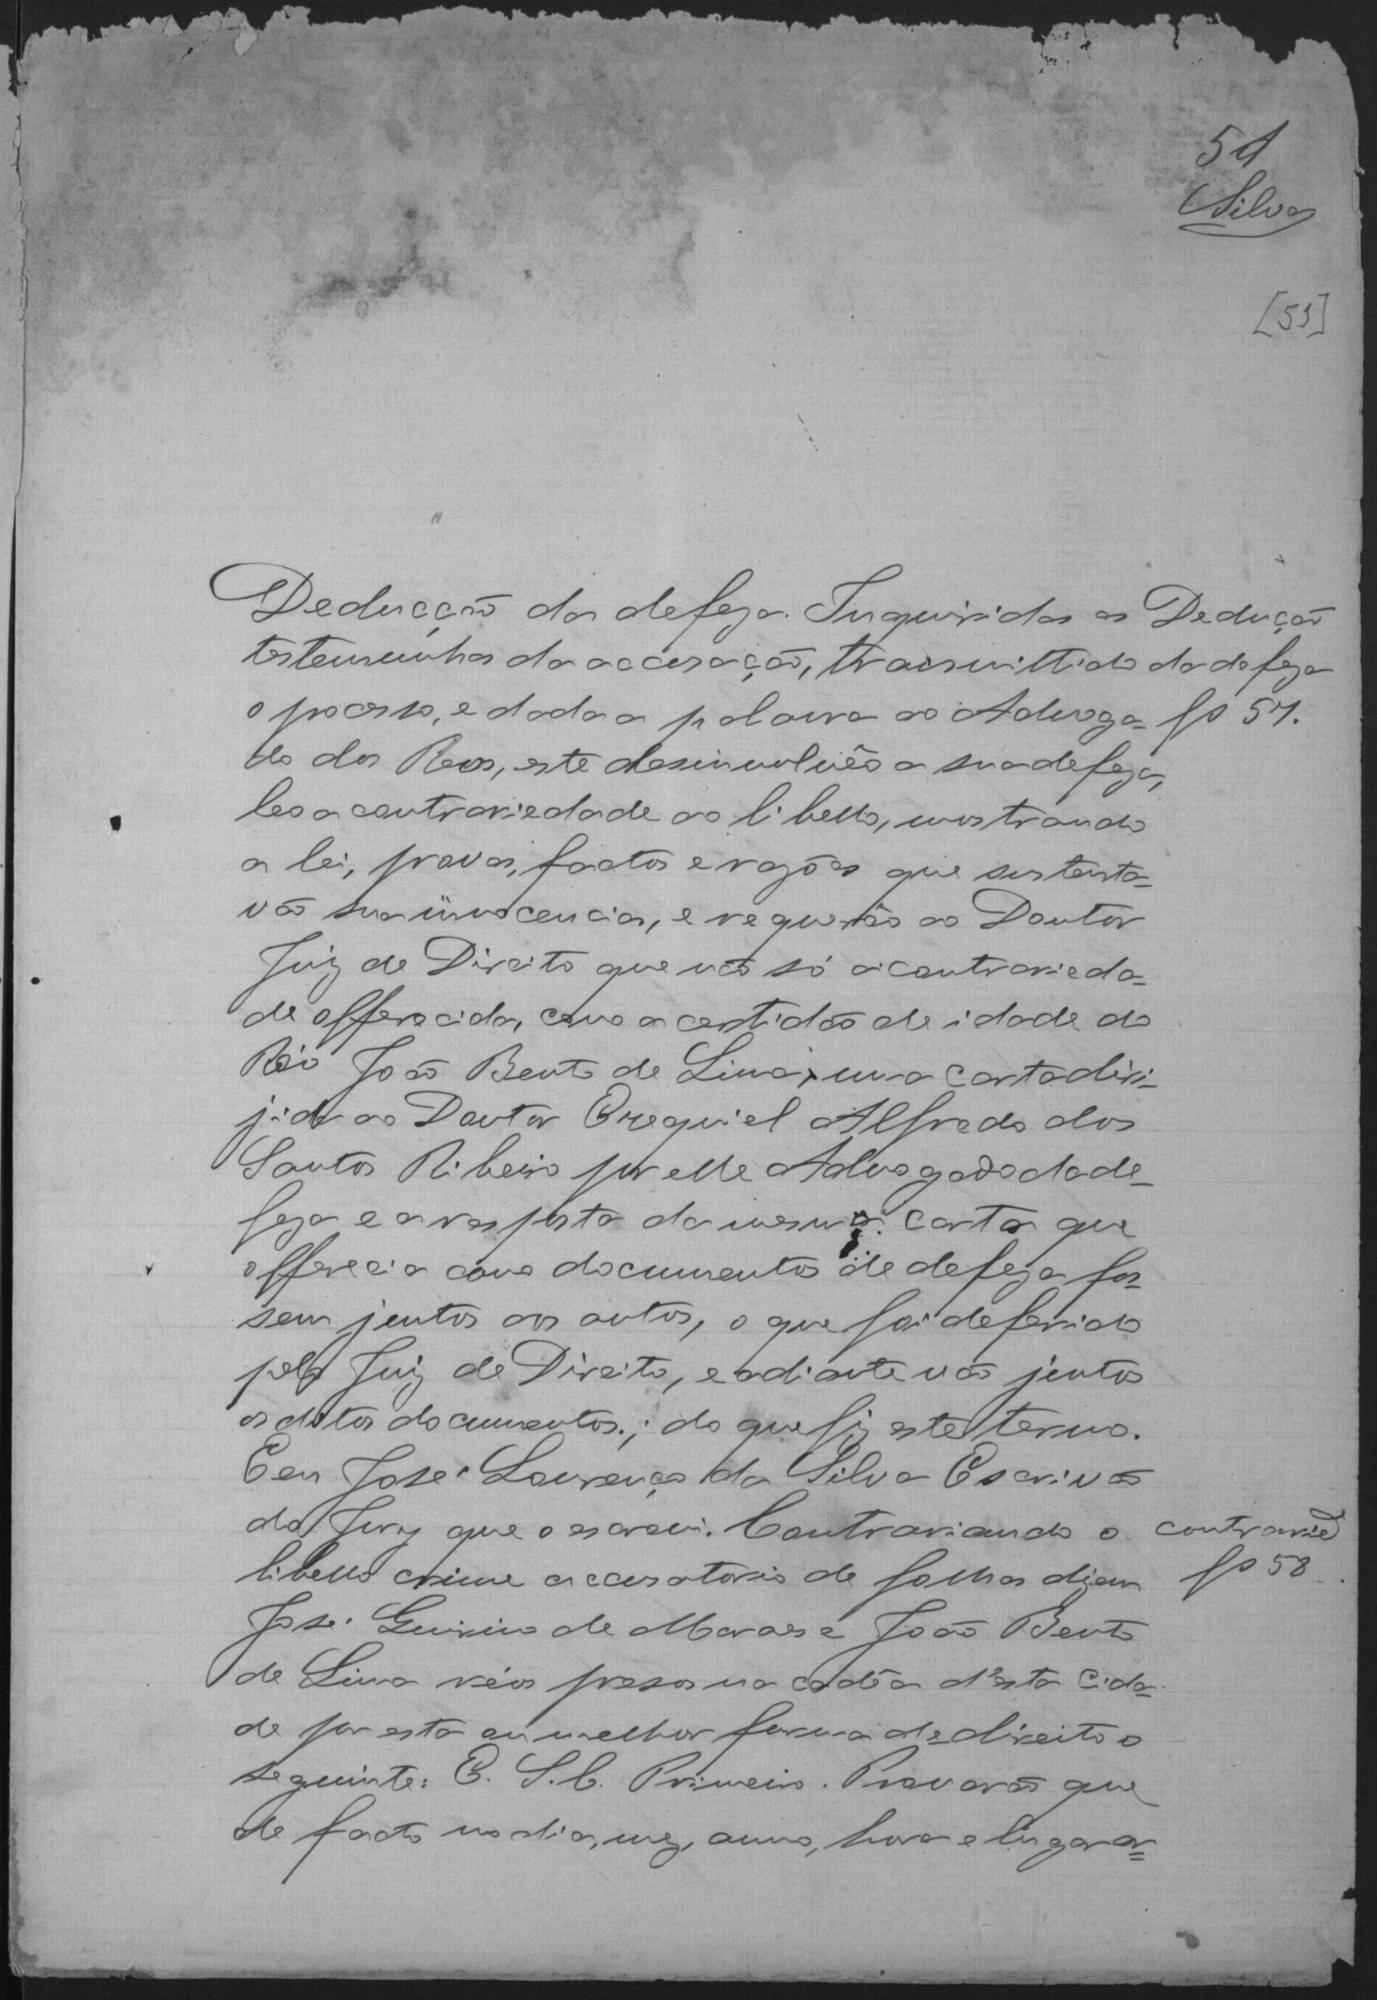 51
Silva
[51]
Deducção da defeza. Inquiridas as
testemunhas da accusação, transmittido
o processo, e dada a palavra ao Advoga=
do dos Reos, este desinvolvêo a sua defeza,
leo a contrariedade ao libello, mostrando
a lei, provas, factos e rasões que sustenta=
vão sua innocencia, e requerêo ao Doutor
Juiz de Direito que não só a contrarieda-
de offerecida, como a certidão de idade do
Réo João Bento de Lima, uma carta diri-
jida ao Doutor Ezequiel Alfredo dos
Santos Ribeiro por elle Advogado da de-
feza e a resposta da mesma carta que
offerecia como documentos de defeza fos-
sem juntos aos autos, o que foi deferido
pelo Juiz de Direito, e adiante vão juntos
os ditos documentos; do que fiz este termo.
E eu José Lourenço da Silva Escrivão
do Jury que o escrevi. Contrariando o
libello crime accusatorio de folhas dizem
José Guirino de Moraes e João Bento
de Lima réos presos na cadêa d'esta Cida-
de por esta ou melhor forma de direito o
seguinte: E. S. C. Primeiro. Provarão que
de facto no dia, mez, anno, hora e lugar a=
Dedução
da defeza
fs 57.
contraried
fs 58